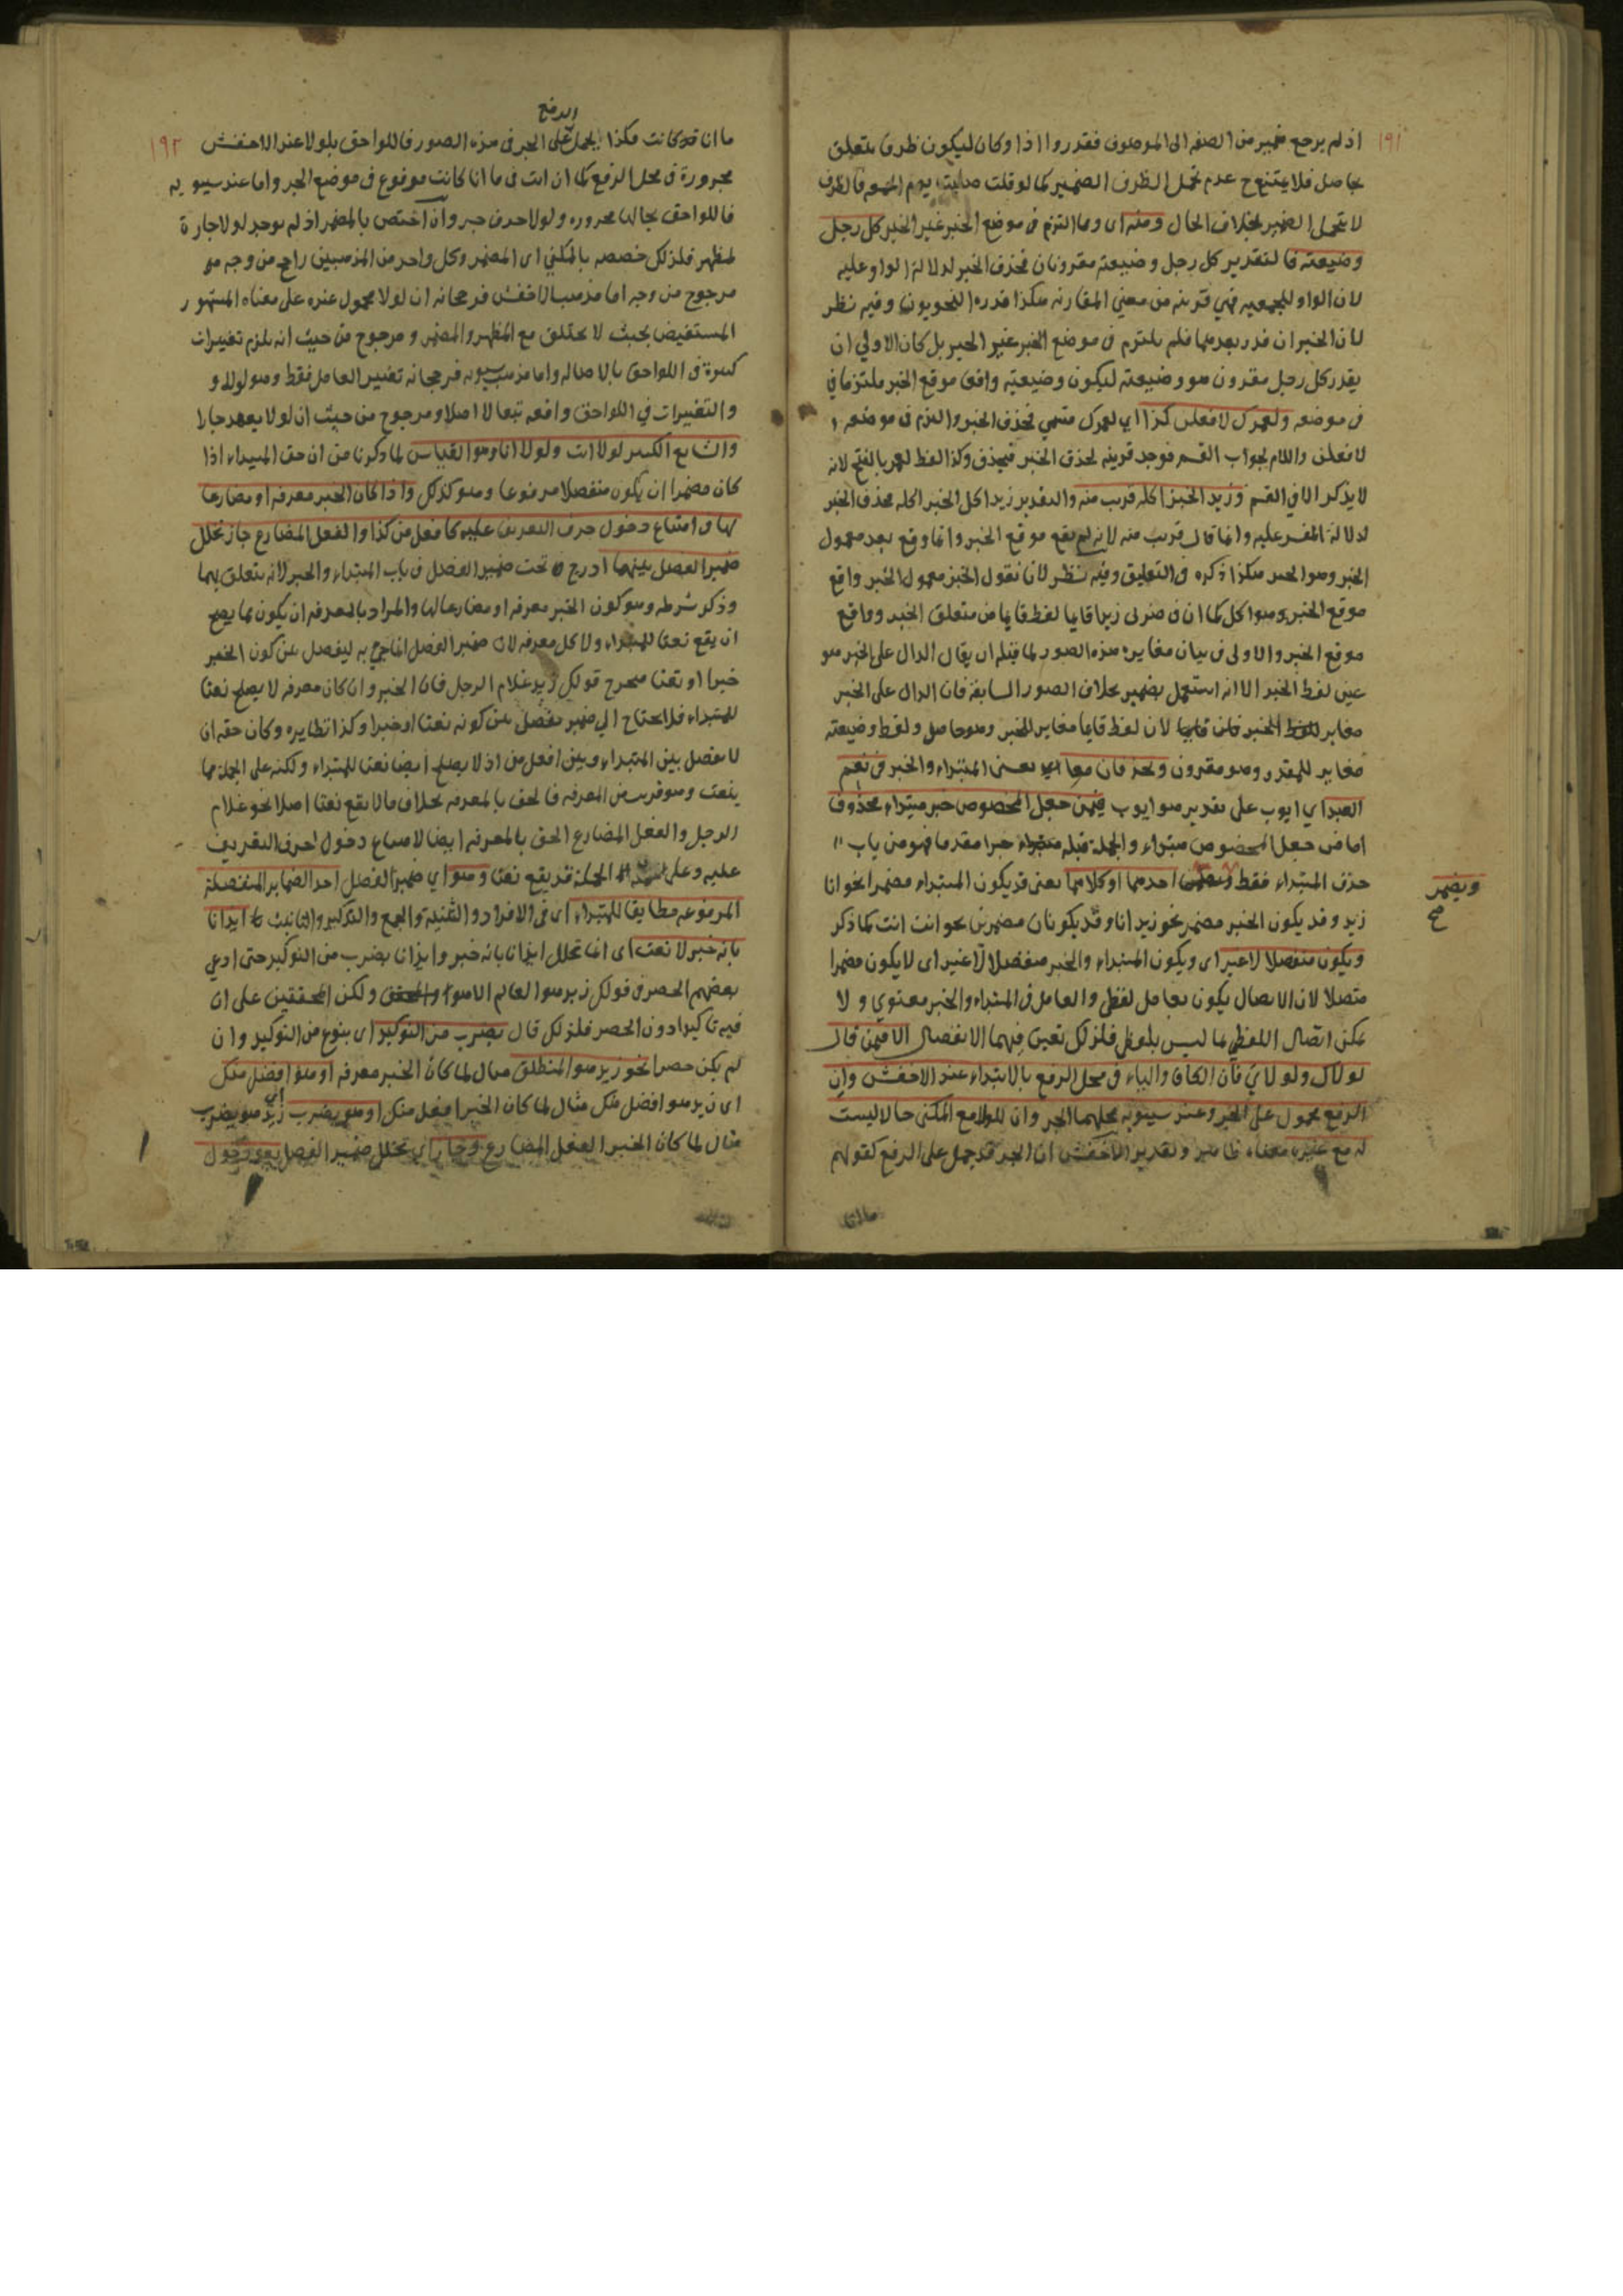 ١٩١
اذ لم يرجع ضمير من الصفه الى الموصوف فقدروا اذا وكان ليكون ظرف متعلق
بحاصل فلا يمتنع ح عدم تحمل الظرف الضمير كما لو قلت يوم الجمعه فالظرف
لا يتحمل الضمير بخلاف الحال ومنه اى ومما التزم فى موضع الخبر غير الخبر كل رجل
وضيعته فا لتقدير كل رجل وضيعته مقرونان فحذف الخبر لدلالة الواو عليه
لان الواو للجمعيه فهي قرينه من معني المقارنه هكذا قدره النحويون وفيه نظر
لان الخبر ان قدر بعدهما فلم يلتزم فى موضع الخبر غير الخبر بل كان الاولي ان
يقدر كل رجل مقرون هو وضيعته ليكون وضيعته واقعا موقع الخبر ملتزما في
فى موضعه ولعمرك لافعلن كذا اي لعمرك قسمي فحذف الخبر والتزم فى موضعه
لافعلن واللام لجواب القسم فوجد قرينه لحذف الخبر فيحذف وكذا لفظ لعمر بالفتح لانه
لا يذكر الا في القسم وزيد الخبز اكله قريب منه والتقدير زيد اكل الخبز اكله محذف الخبر
لدلالة المفسر عليه وانما قال قريب منه لانه لم يقع موقع الخبر وانما وقع بعد معمول
الخبر وهو الخبز هكذا ذكره فى التعليق وفيه نظر لانا نقول الخبز معمول الخبر واقع
موقع الخبر وهو اكل كما ان فى ضربى زيدا قايما لفظ قايما من متعلق الخبر وواقع
موقع الخبر والاولى فى بيان مغايرة هذه الصور لما قبله ان يقال الدال على الخبر هو
عين لفظ الخبر الا انه استعمل بضمير بخلاف الصور السابقة فان الدال على الخبر
مغاير للفظ الخبر لان لفظ قايما مغاير للخبر وهو حاصل ولفظ وضيعته
مغاير للمقدر وهو مقرون ويحذفان معا اي يعنى المبتداء والخبر فى نعم
العبد اي ايوب على تقدير هو ايوب فيمن جعل المخصوص خبر مبتداء محذوف
اما من جعل المخصوص مبتداء والجملة قبله خبرا مقدما فهو من باب
حذف المبتداء فقط احدهما او كلاهما يعنى قد يكون المبتداء مضمرا نحو انا
ويضمر
صح
زيد وقد يكون الخبر مضمرا نحو زيد انا وقد يكونان مضمرين نحو انت انت كما ذكر
ويكون منفصلا لا غير اى ويكون المبتداء والخبر منفصلا لا غير اى لا يكون مضمرا
متصلا لان الاتصال يكون بعامل لفظى والعامل فى المبتداء والخبر معنوي ولا
يمكن اتصال اللفظي بما ليس بلفظ فلذلك تعين فيهما الانفصال الا فيمن قال
لولاك ولولاي فان الكاف والياء فى محل الرفع بالابتداء عند الاخفش وان
الرفع محمول على الجر وعند سيبويه محلهما الجر وان للولا مع المكنى حالا ليست
له مع غيره معناه ظاهر وتقدير الاخفش ان الجر قد حمل على الرفع كقولهم
ما انا
١٩٢
الرفع
ما انا كانت هكذا يحمل على الجر فى هذه الصور فاللواحق بلولا عند الاخفش
مجرورة فى محل الرفع كما ان انت فى ما انا كانت مرفوع فى موضع الجر واما عند سيبويه
فاللواحق بحالها مجروره ولولا حرف جر وان اختص بالمضمر اذ لم يوجد لولا جارة
لمظهر فلذلك خصصه بالمكني اى المضمر وكل واحد من المذهبين راجح من وجه
مرجوح من وجه اما مذهب الاخفش فرجحانه ان لولا محمول عنده على معناه المشهور
المستفيض بحيث لا يختلف مع المظهر والمضمر ومرجوح من حيث انه يلزم تغييرات
كثيرة فى اللواحق بالاصاله واما مذهب سيبويه فرجحانه تغيير العامل فقط وهو لولا و
والتغييرات في اللواحق واقعه تبعا لا اصلا ومرجوح من حيث ان لولا يعهد جارا
والشايع الكثير لولا انت ولولا انا وهو القياس لما ذكرنا من ان حق المبتداء اذا
كان مضمرا ان يكون منفصلا مرفوعا وهو كذلك واذا كان الخبر معرفه او مضارعا
لها فى امتناع دخول حرف التعريف عليه كافعل من كذا والفعل المضارع جاز تخلل
ضمير الفصل بينهما ادرج تحت ضمير الفصل فى باب المبتداء والخبر لانه يتعلق بهما
وذكر شرطه وهو كون الخبر معرفه او مضارعا لها والمراد بالمعرفه ان يكون مما يصح
ان يقع نعتا للمبتداء ولا كل معرفه لان ضمير الفصل انما جيء به ليفصل عن كون الخبر
خبرا او نعتا فيخرج قولك زيد غلام الرجل فان الخبر وان كان معرفه لا يصلح نعتا
للمبتداء فلا احتاج الي ضمير يفصل عن كونه نعتا او خبرا وكذا نظايره وكان حقه ان
لا يفصل بين المبتداء وبين افعل من اذ لا يصلح ايضا نعتا للمبتداء ولكنه على الجملة مما
ينعت وهو قريب من المعرفه فالحق بالمعرفه بخلاف ما لا يقع نعتا اصلا نحو غلام
الرجل والفعل المضارع الحق بالمعرفه ايضا لامتناع دخول حرف التعريف
عليه وعلى الجملة قد يقع نعتا وهو اي ضمير الفصل احد الضماير المنفصلة
المرفوعه مطابقا للمبتداء اى فى الافراد والتثنية والجمع والتذكير والتانيث ايذانا
بانه خبر لا نعت اى انما تخلل ايذانا بانه خبر وايذانا بضرب من التوكيد حتى ادعي
بعضهم الحصر فى قولك زيد هو العالم الا هو ولكن المحققين على ان
فيه تاكيدا دون الحصر فلذلك قال بضرب من التوكيد اى بنوع من التوكيد وان
لم يكن حصرا نحو زيد هو المنطلق مثال لما كان الخبر معرفه او هو افضل منك
اى زيد هو افضل منك مثال لما كان الخبر افعل منك او هو يضرب اي زيد هو يضرب
مثال لما كان الخبر الفعل المضارع وجاز اي تخلل ضمير الفصل بعد دخول